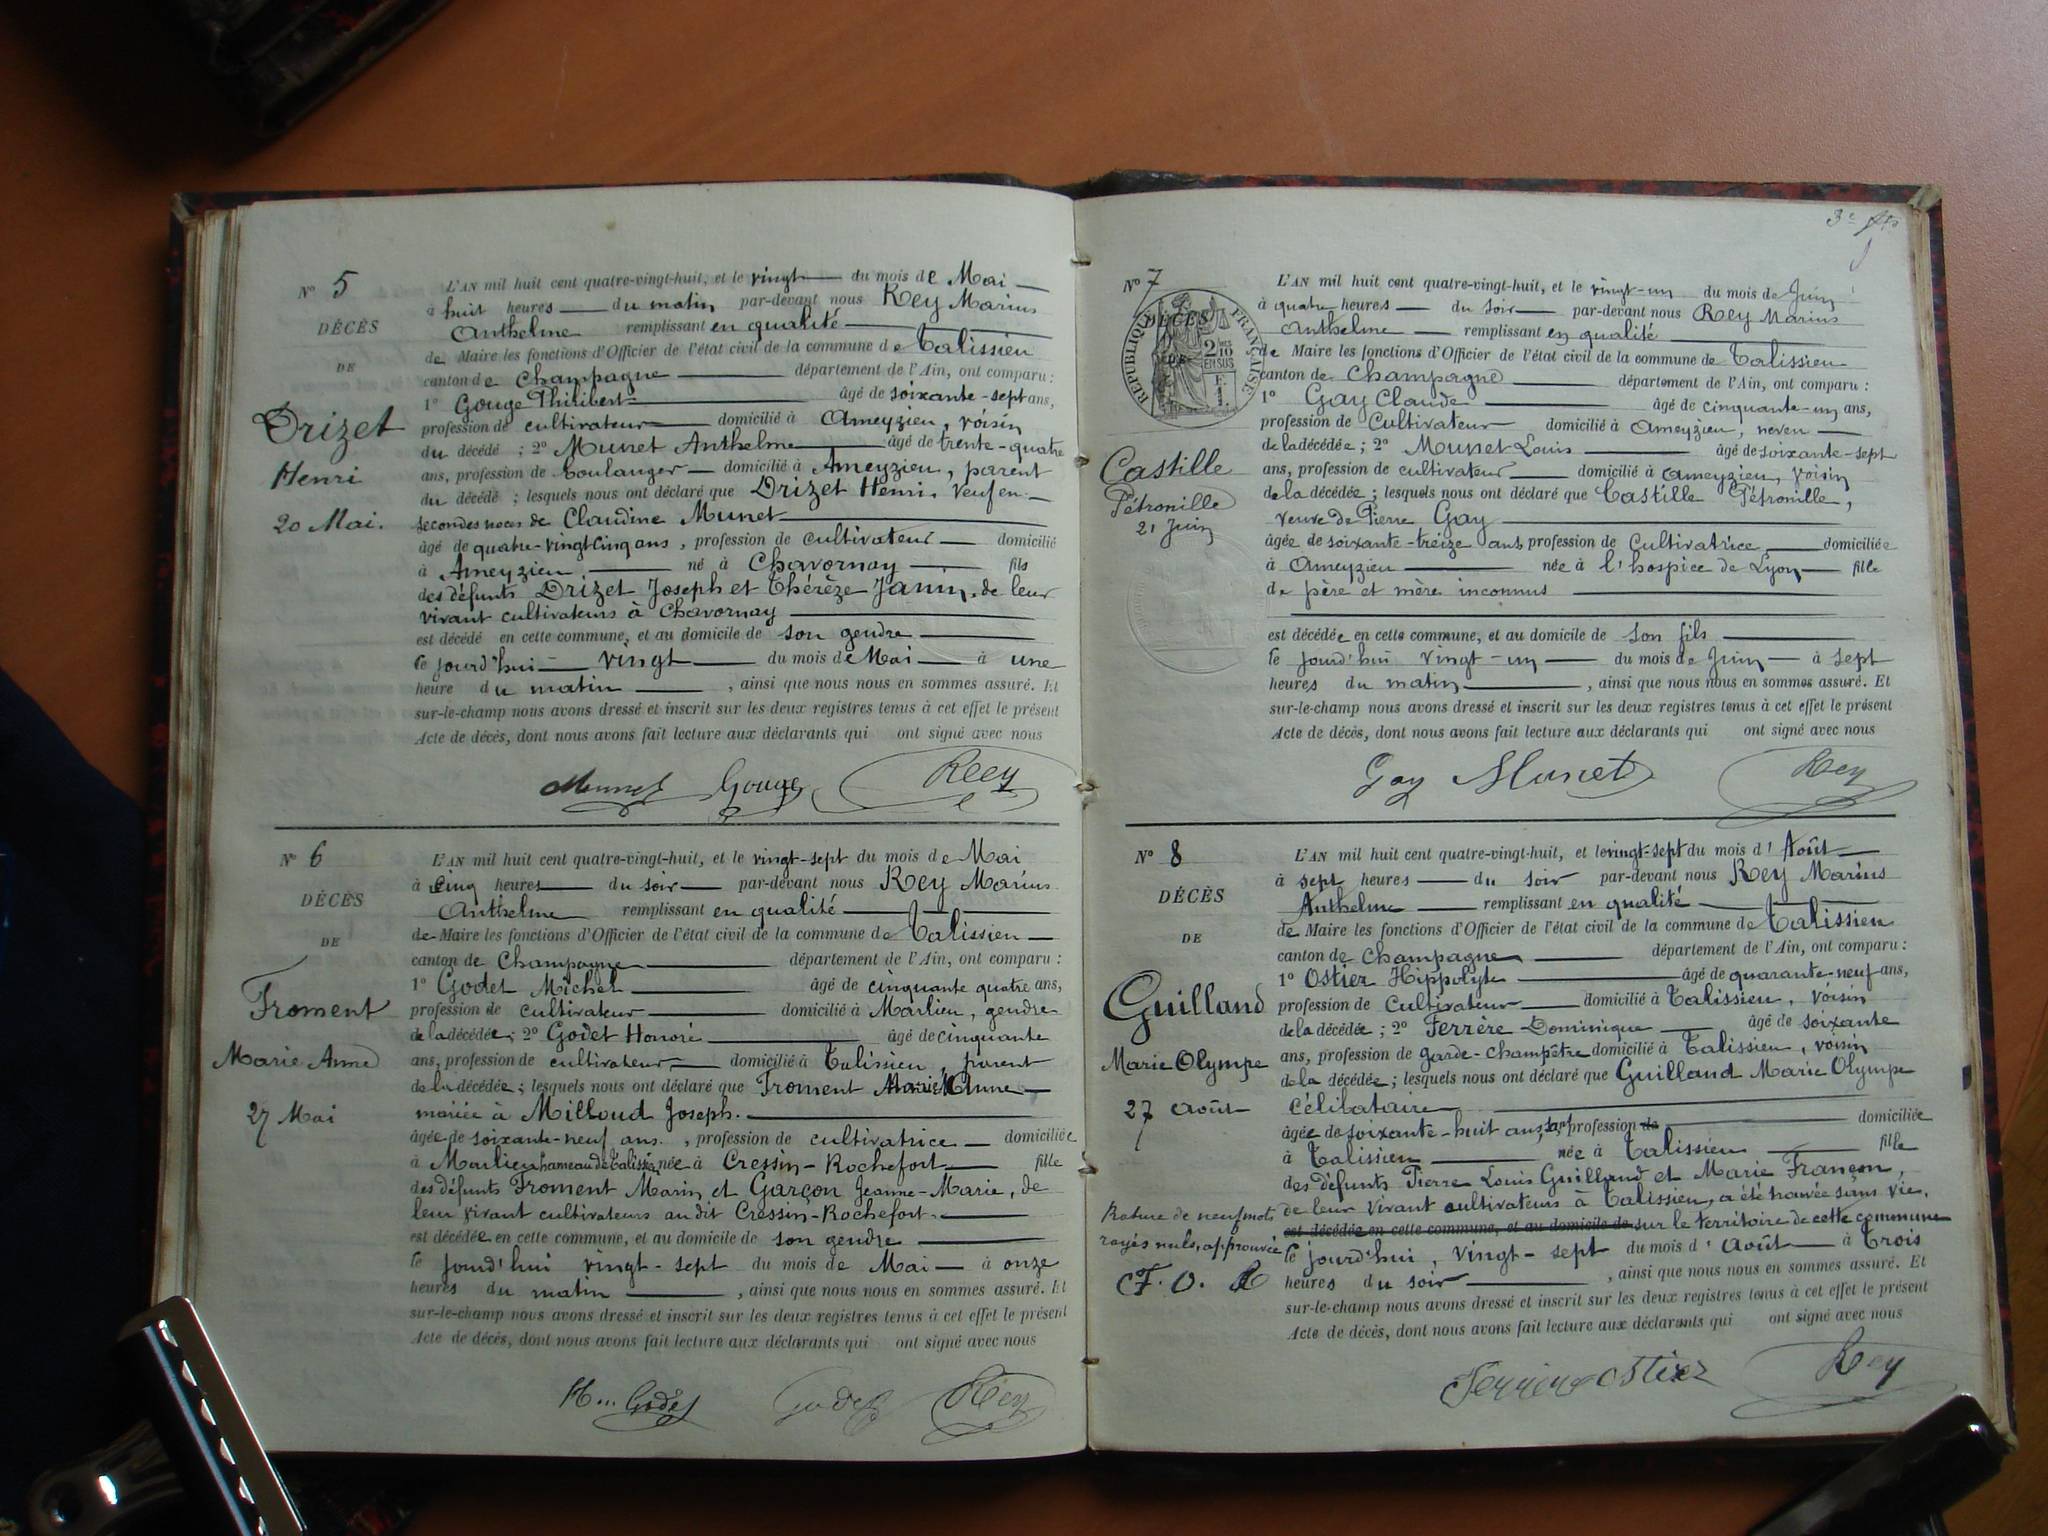 N° 5
DÉCÈS
DE
Drizet
Henri
20 Mai.
L'AN mil huit cent quatre-vingt-huit, et le vingt du mois de Mai
à huit heures du matin par-devant nous Rey Marius
Anthelme remplissant en qualité
de Maire les fonctions d'Officier de l'état civil de la commune de Talissieu
canton de Champagne département de l'Ain, ont comparu :
1° Gouge Philibert âgé de soixante-sept ans,
profession de cultivateur domicilié à Ameyzieu, voisin
du décédé ; 2° Munet Anthelme âgé de trente-quatre
ans, profession de boulanger domicilié à Ameyzieu, parent
du décédé ; lesquels nous ont déclaré que Drizet Henri, veuf en
secondes noces de Claudine Munet
âgé de quatre-vingt cinq ans, profession de cultivateur domicilié
à Ameyzieu, né à Chavornay fils
des défunts Drizet Joseph et Thérèze Janin, de leur
vivant cultivateurs à Chavornay
est décédé en cette commune, et au domicile de son gendre
le jourd'hui vingt du mois de Mai à une
heure du matin, ainsi que nous nous en sommes assuré. Et
sur-le-champ nous avons dressé et inscrit sur les deux registres tenus à cet effet le présent
Acte de décès, dont nous avons fait lecture aux déclarants qui ont signé avec nous
Munet Gouge Rey
N° 6
DÉCÈS
DE
Froment
Marie Anne
27 Mai
L'AN mil huit cent quatre-vingt-huit, et le vingt-sept du mois de Mai
à cinq heures du soir par-devant nous Rey Marius
Anthelme remplissant en qualité
de Maire les fonctions d'Officier de l'état civil de la commune de Talissieu
canton de Champagne département de l'Ain, ont comparu :
1° Godet Michel âgé de cinquante quatre ans,
profession de cultivateur domicilié à Marlieu, gendre
de la décédée ; 2° Godet Honoré âgé de cinquante
ans, profession de cultivateur domicilié à Talissieu, parent
de la décédée ; lesquels nous ont déclaré que Froment Marie Anne
mariée à Milloud Joseph.
âgée de soixante-neuf ans, profession de cultivatrice domiciliée
à Marlieu hameau de Talissieu née à Cressin-Rochefort fille
des défunts Froment Marin et Garçon Jeanne-Marie, de
leur vivant cultivateurs au dit Cressin-Rochefort.
est décédée en cette commune, et au domicile de son gendre
le jourd'hui vingt-sept du mois de Mai à onze
heures du matin, ainsi que nous nous en sommes assuré. Et
sur-le-champ nous avons dressé et inscrit sur les deux registres tenus à cet effet le présent
Acte de décès, dont nous avons fait lecture aux déclarants qui ont signé avec nous
H... Godet Godet Rey
3e
N° 7
DÉCÈS
DE
RÉPUBLIQUE FRANÇAISE
2/10
EN SUS
Castille
Pétronille
21 Juin
L'AN mil huit cent quatre-vingt-huit, et le vingt-un du mois de Juin
à quatre heures du soir par-devant nous Rey Marius
Anthelme remplissant en qualité
de Maire les fonctions d'Officier de l'état civil de la commune de Talissieu
canton de Champagne département de l'Ain, ont comparu :
1° Gay Claude âgé de cinquante-un ans,
profession de Cultivateur domicilié à Ameyzieu, neveu
de la décédée ; 2° Munet Louis âgé de soixante-sept
ans, profession de cultivateur domicilié à Ameyzieu, voisin
de la décédée ; lesquels nous ont déclaré que Castille Pétronille,
veuve de Pierre Gay
âgée de soixante-treize ans profession de Cultivatrice domiciliée
à Ameyzieu née à l'hospice de Lyon fille
de père et mère inconnus
est décédée en cette commune, et au domicile de son fils
le jourd'hui vingt-un du mois de Juin à sept
heures du matin, ainsi que nous nous en sommes assuré. Et
sur-le-champ nous avons dressé et inscrit sur les deux registres tenus à cet effet le présent
Acte de décès, dont nous avons fait lecture aux déclarants qui ont signé avec nous
Gay Munet Rey
N° 8
DÉCÈS
DE
Guilland
Marie Olympe
27 Août
Rature de neuf mots
rayés nuls, approuvée
F. O. R
L'AN mil huit cent quatre-vingt-huit, et le vingt-sept du mois d'Août
à sept heures du soir par-devant nous Rey Marius
Anthelme remplissant en qualité
de Maire les fonctions d'Officier de l'état civil de la commune de Talissieu
canton de Champagne département de l'Ain, ont comparu :
1° Ostier Hippolyte âgé de quarante-neuf ans,
profession de Cultivateur domicilié à Talissieu, voisin
de la décédée ; 2° Ferrère Dominique âgé de soixante
ans, profession de garde-champêtre domicilié à Talissieu, voisin
de la décédée ; lesquels nous ont déclaré que Guilland Marie Olympe
célibataire
âgée de soixante-huit ans, sans profession de domiciliée
à Talissieu née à Talissieu fille
des défunts Pierre Louis Guilland et Marie Françon,
de leur vivant cultivateurs à Talissieu, a été trouvée sans vie,
est décédée en cette commune, et au domicile de sur le territoire de cette commune
le jourd'hui, vingt-sept du mois d'Août à trois
heures du soir, ainsi que nous nous en sommes assuré. Et
sur-le-champ nous avons dressé et inscrit sur les deux registres tenus à cet effet le présent
Acte de décès, dont nous avons fait lecture aux déclarants qui ont signé avec nous
Ferrère Ostier Rey